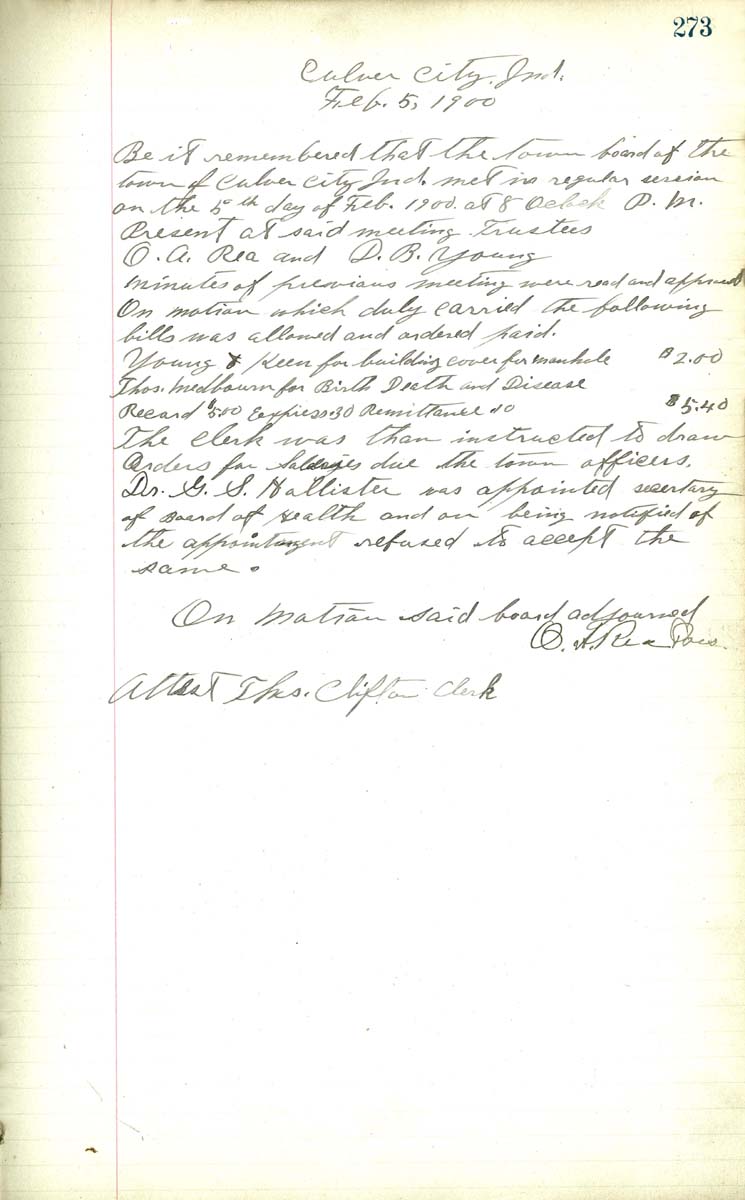 273
Culver City, Ind.
Feb. 5, 1900
Be it remembered that the town board of the
town of Culver City Ind. met in regular session
on the 5th day of Feb. 1900. at 8 Oclock P. M.
Present at said meeting Trustees
O. A. Rea and D. B. Young
minutes of previous meeting were read and approved
On motion which duly carried the following
bills was allowed and ordered paid.
Young & Keen for building cover for manhole $2.00
Thos. Medbourn for Birth Death and Disease
Record $5.00 Express .30 Remittance .10 $5.40
The clerk was than instructed to draw
Orders for Salaries due the town officers.
Dr. G. S. Hollister was appointed secertary
of Board of Health and on being notified of
the appointment refused to accept the
same.
On Motion said board adjourned
O. A. Rea Pres.
Attest Thos. Clifton Clerk